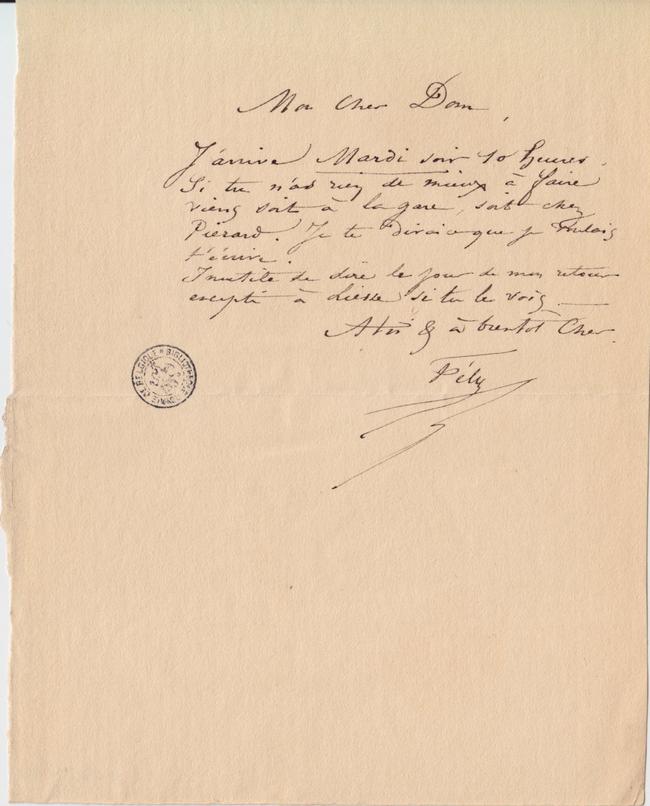 Mon Cher Dom,
J'arrive Mardi soir 10 heures.
Si tu n'as rien de mieux à faire
viens soit à la gare, soit chez
Piérard. Je te dirai ce que je voulais
t'écrire.
Inutile de dire le jour de mon retour
excepté à Liesse si tu le vois
& à bientôt Cher
Fély
BIBLIOTHEQUE DE BELGIQUE